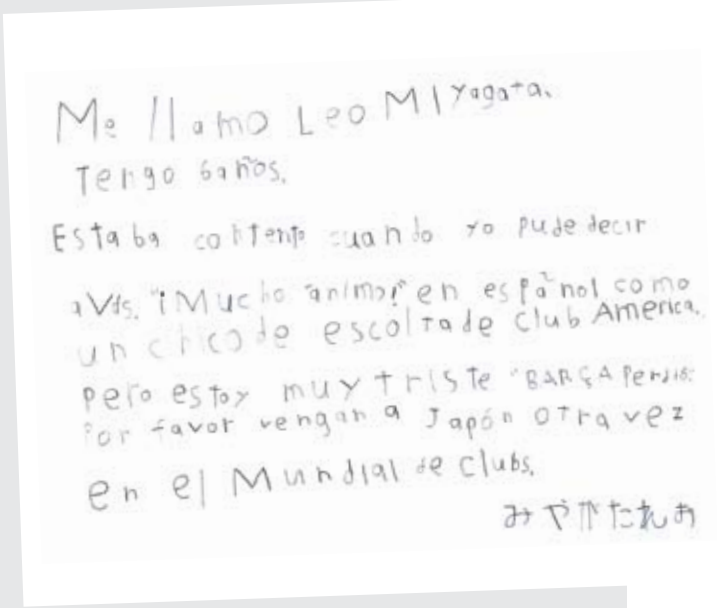 Me llamo Leo MIyagata.
Tengo 6 años.
Estaba contento cuando yo pude decir
a Vds. "¡Mucho ánimo!" en español como
un chico de escolta de Club America.
pero estoy muy triste "BARÇA Perdió."
Por favor vengan a Japón otra vez
en el Mundial de clubs.
みやがたれお